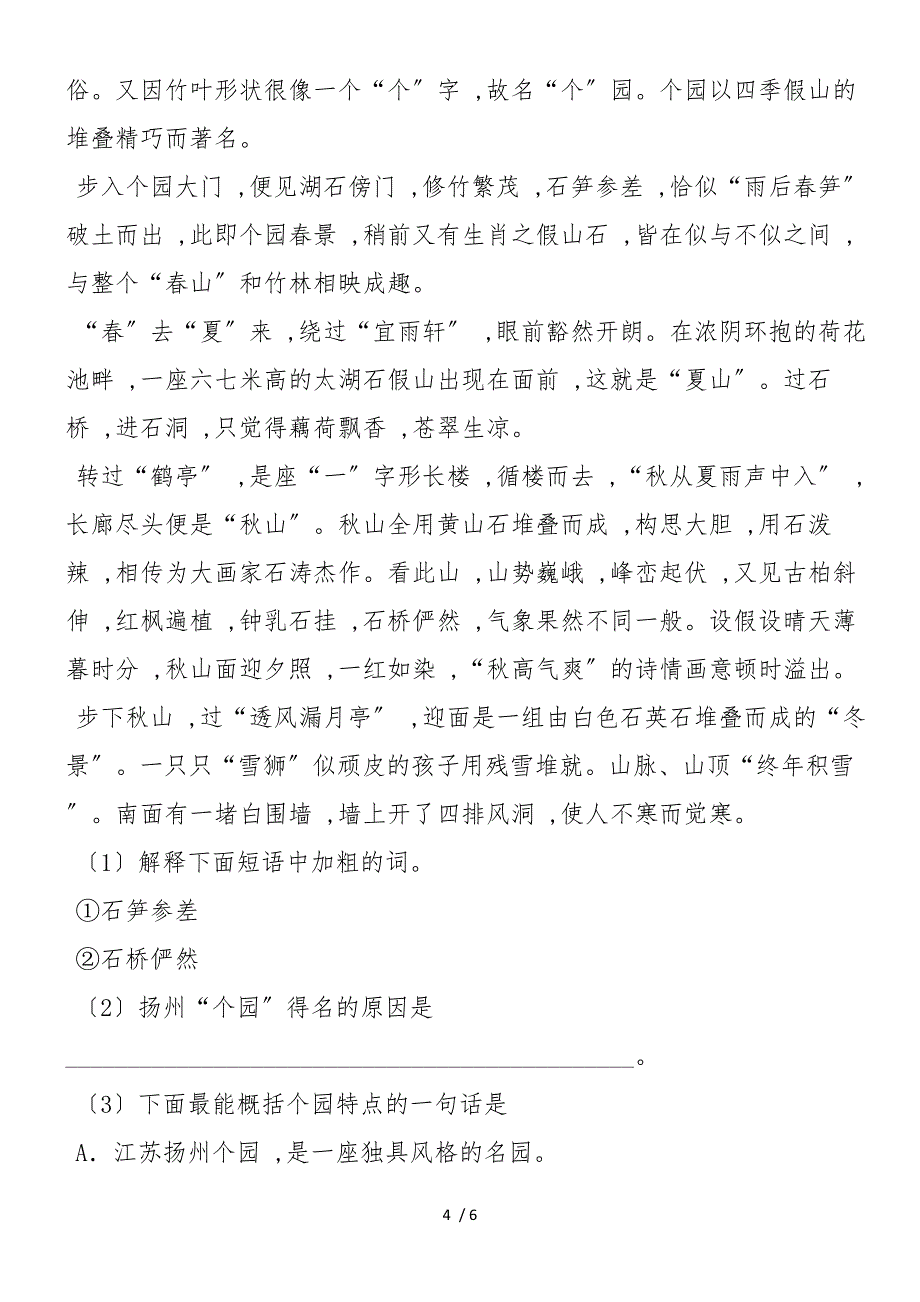 俗。又因竹叶形状很像一个“个〞字 ,故名“个〞园。个园以四季假山的
堆叠精巧而著名。
步入个园大门 ,便见湖石傍门 ,修竹繁茂 ,石笋参差 ,恰似“雨后春笋〞
破土而出 ,此即个园春景 ,稍前又有生肖之假山石 ,皆在似与不似之间 ,
与整个“春山〞和竹林相映成趣。
“春〞去“夏〞来 ,绕过“宜雨轩〞 ,眼前豁然开朗。在浓阴环抱的荷花
池畔 ,一座六七米高的太湖石假山出现在面前 ,这就是“夏山〞。过石
桥 ,进石洞 ,只觉得藕荷飘香 ,苍翠生凉。
转过“鹤亭〞 ,是座“一〞字形长楼 ,循楼而去 ,“秋从夏雨声中入〞 ,
长廊尽头便是“秋山〞。秋山全用黄山石堆叠而成 ,构思大胆 ,用石泼
辣 ,相传为大画家石涛杰作。看此山 ,山势巍峨 ,峰峦起伏 ,又见古柏斜
伸 ,红枫遍植 ,钟乳石挂 ,石桥俨然 ,气象果然不同一般。设假设晴天薄
暮时分 ,秋山面迎夕照 ,一红如染 ,“秋高气爽〞的诗情画意顿时溢出。
步下秋山 ,过“透风漏月亭〞 ,迎面是一组由白色石英石堆叠而成的“冬
景〞。一只只“雪狮〞似顽皮的孩子用残雪堆就。山脉、山顶“终年积雪
〞。南面有一堵白围墙 ,墙上开了四排风洞 ,使人不寒而觉寒。
〔1〕解释下面短语中加粗的词。
①石笋参差
②石桥俨然
〔2〕扬州“个园〞得名的原因是
______________________________________________。
〔3〕下面最能概括个园特点的一句话是
A．江苏扬州个园 ,是一座独具风格的名园。
4 / 6